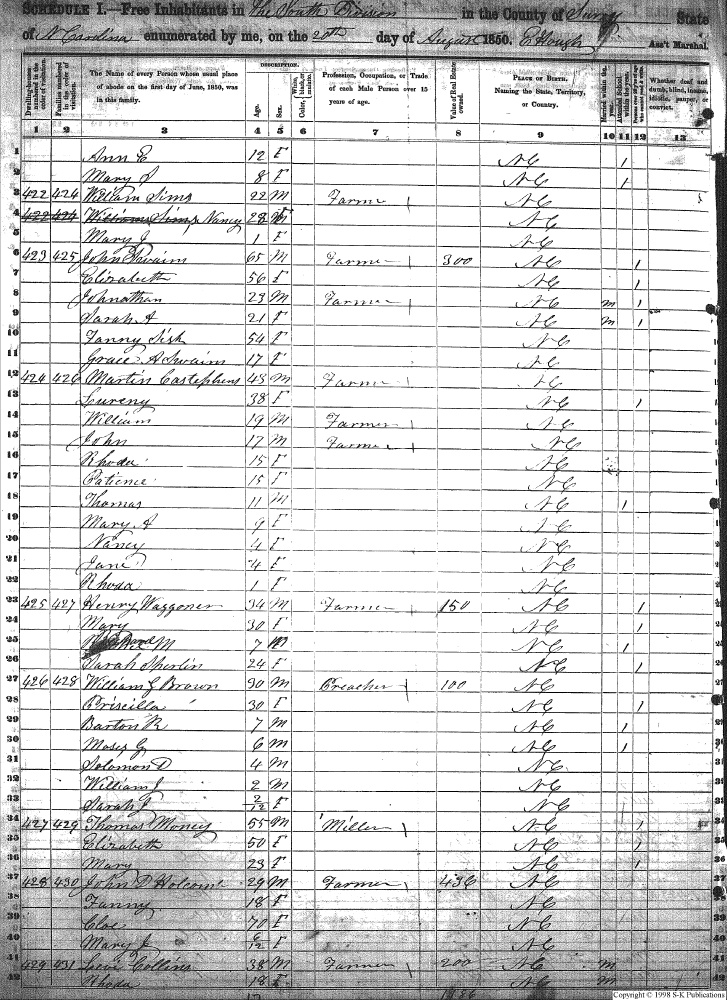 SCHEDULE I.—Free Inhabitants in The South Division in the County of Surry State
of N Carolina enumerated by me, on the 20th day of August 1850. E Hough Ass't Marshal.
Dwelling-houses numbered in the order of visitation.
Families numbered in the order of visitation.
The Name of every Person whose usual place of abode on the first day of June, 1850, was in this family.
DESCRIPTION.
Age.
Sex.
Color, White, black, or mulatto.
Profession, Occupation, or Trade of each Male Person over 15 years of age.
Value of Real Estate owned.
PLACE OF BIRTH.
Naming the State, Territory, or Country.
Married within the year.
Attended School within the year.
Whether deaf and dumb, blind, insane, idiotic, pauper, or convict.
1 2 3 4 5 6 7 8 9 10 11 12 13
1 Ann E 12 F NC 1
2 Mary S 8 F NC 1
3 422 424 William Sims 22 M Farmer NC
4 422 424 William Sims Nancy 28 F NC
5 Mary J 1 F NC
6 423 425 John Swaim 65 M Farmer 300 NC 1
7 Elizabeth 56 F NC 1
8 Johnathan 23 M Farmer NC M 1
9 Sarah A 21 F NC M 1
10 Fanny Sisk 54 F NC
11 Grace A Swaim 17 F NC
12 424 426 Martin Castephens 43 M Farmer NC
13 Lureny 38 F NC 1
14 William 19 M Farmer NC
15 John 17 M Farmer NC
16 Rhoda 15 F NC
17 Patience 15 F NC
18 Thomas 11 M NC 1
19 Mary A 9 F NC
20 Nancy 4 F NC
21 Jane 4 F NC
22 Rhoda 1 F NC
23 425 427 Henry Waggoner 34 M Farmer 150 NC 1
24 Mary 30 F NC 1
25 M 7 M NC 1
26 Sarah Sperlin 24 F NC 1
27 426 428 William G Brown 30 M Preacher 100 NC
28 Priscilla 30 F NC 1
29 Barton R 7 M NC 1
30 Moses G 6 M NC 1
31 Solomon D 4 M NC
32 William J 2 M NC
33 Sarah J 2/12 F NC
34 427 429 Thomas Money 55 M Miller NC 1
35 Elizabeth 50 F NC 1
36 Mary 23 F NC 1
37 428 430 John D Holcomb 29 M Farmer 436 NC
38 Fanny 18 F NC
39 Cloe 70 F NC
40 Mary J 6/12 F NC
41 429 431 Levi Collins 38 M Farmer 200 NC M
42 Rhoda 18 F NC M
Copyright © 1998 S-K Publications